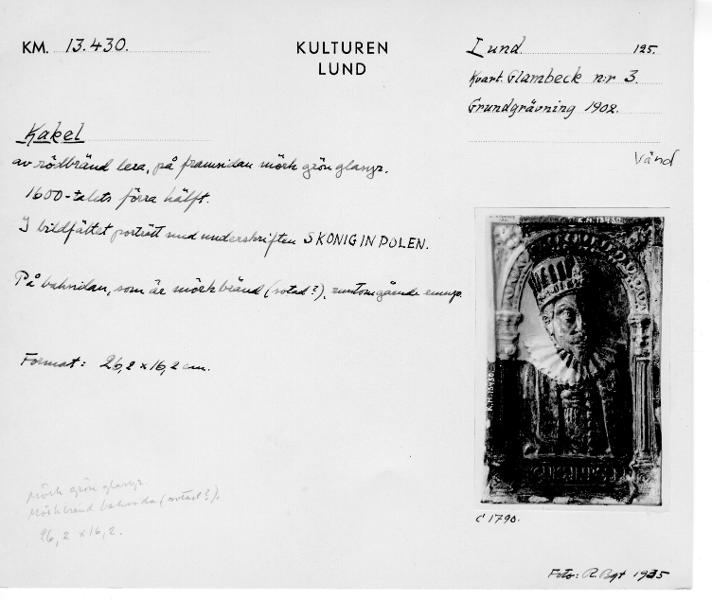 KM. 13.430.
KULTUREN
LUND
Lund 125.
Kvart. Glambeck n:r 3.
Grundgrävning 1902.
Vänd
Kakel
av rödbränd lera, på framsidan mörk grön glasyr.
1600-talets förra hälft.
I bildfältet porträtt med underskriften S KONIG IN POLEN.
På baksidan, som är mörkbränd (sotad?), runtomgående
Format: 26,2 x 16,2 cm.
Mörk grön glasyr.
Mörkbränd baksida (sotad?).
26,2 x 16,2.
C 1790.
Foto: R. Bgt 1935